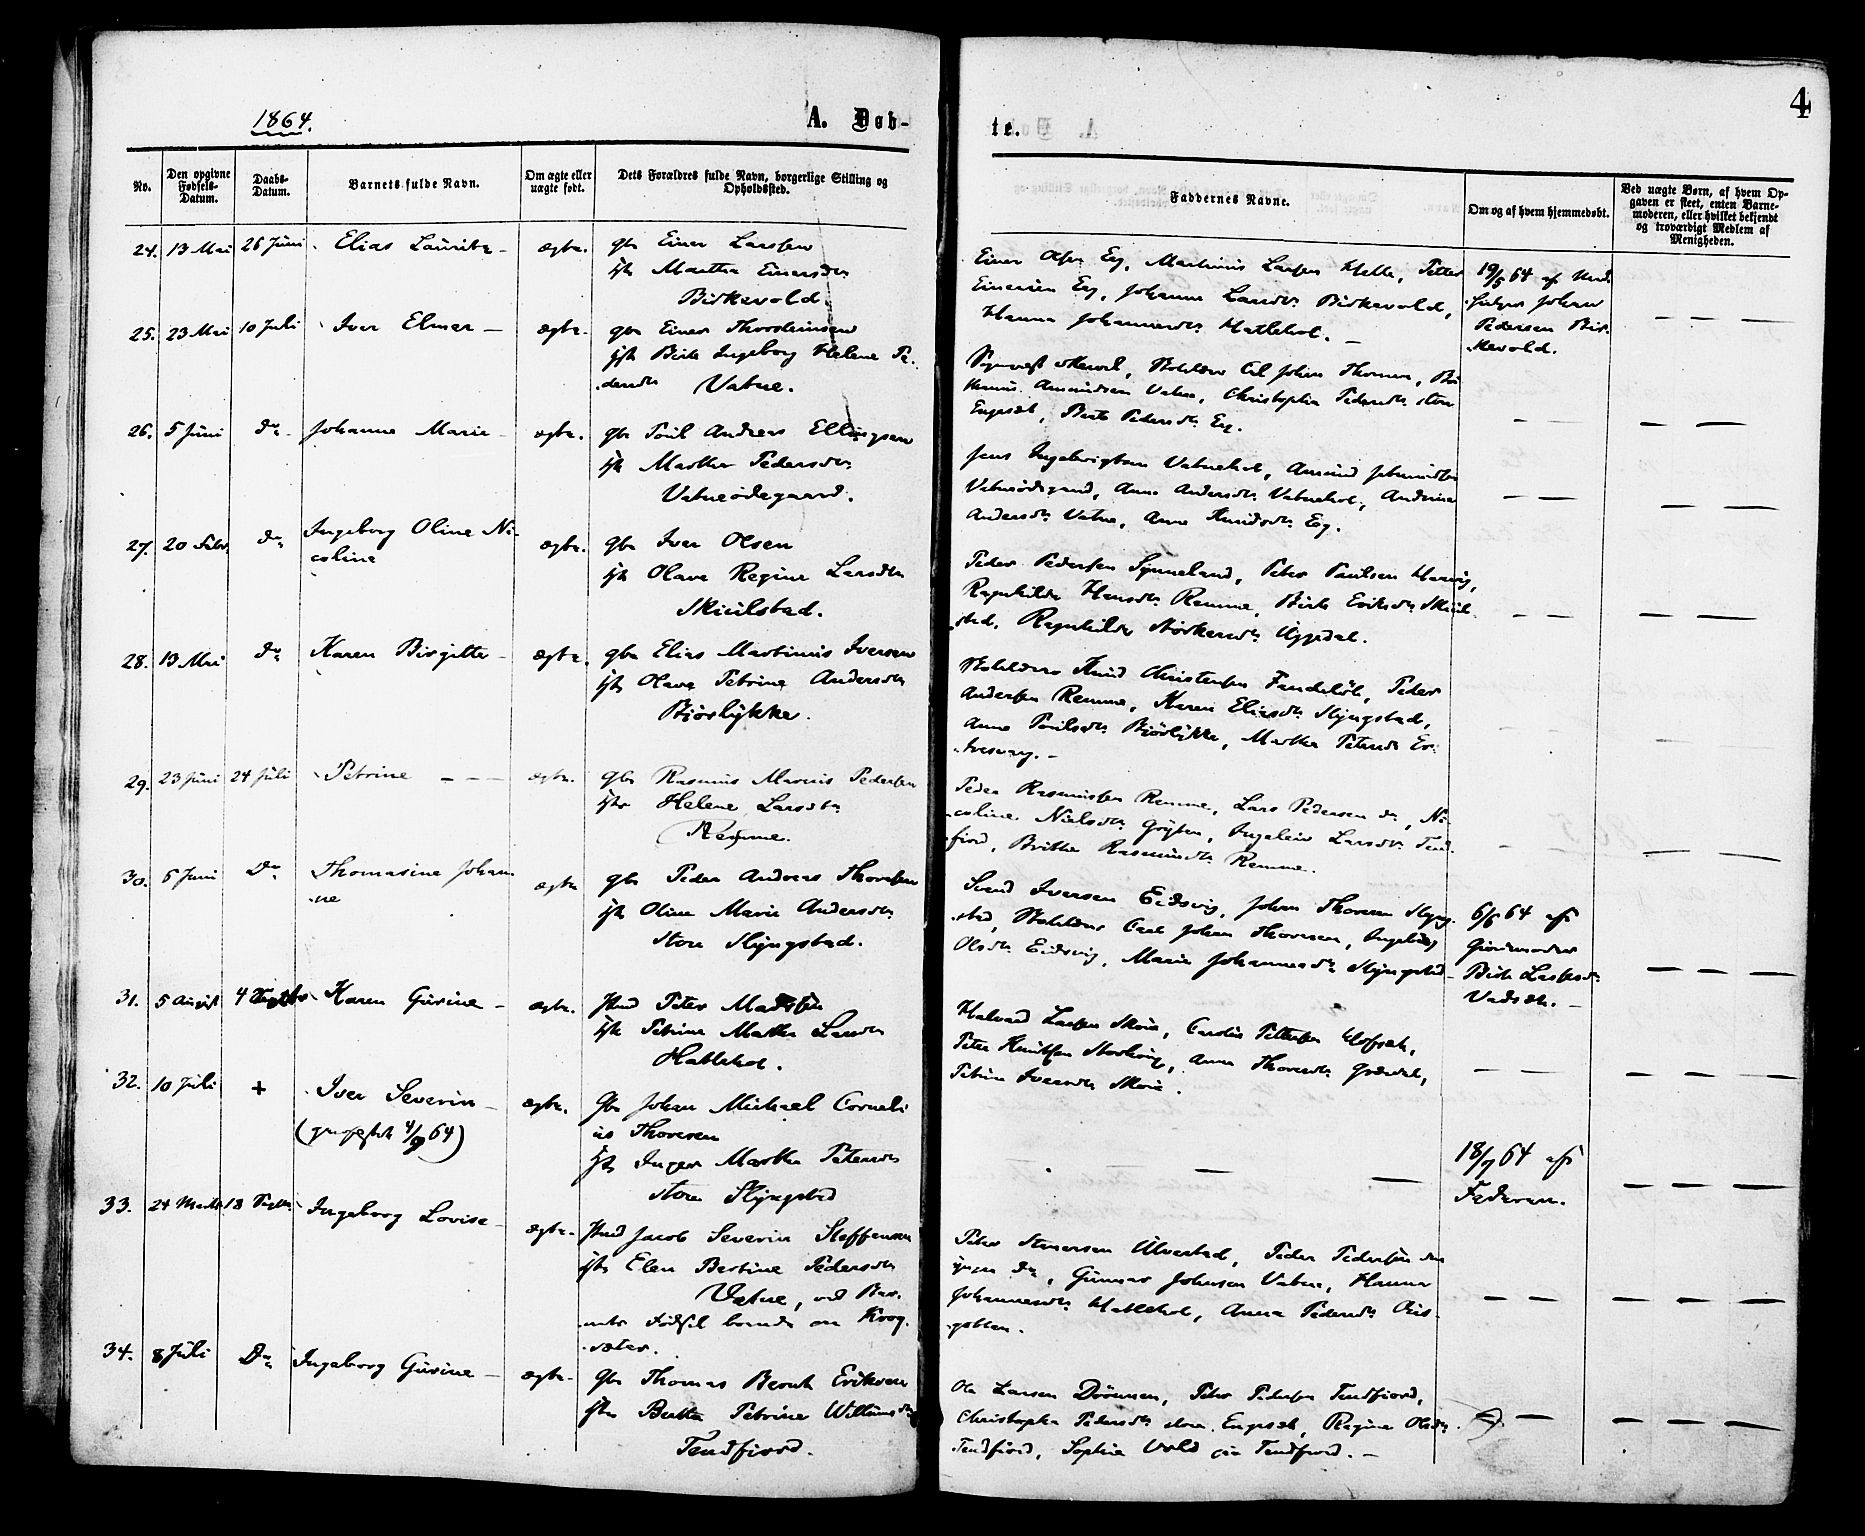 1864.
A. Døb-
te.
4
No.
Den opgivne Fødsels-Datum.
Daabs-Datum.
Barnets fulde Navn.
Om ægte eller uægte født.
Dets Forældres fulde Navn, borgerlige Stilling og Opholdssted.
Faddernes Navne.
Om og af hvem hjemmedøbt.
Ved uægte Børn, af hvem Op-
gaven er skeet, enten Barne-
moderen, eller hvilket bekjendt
og troværdigt Medlem af
Menigheden.
24. 13 Mai 26 Juni Elias Lauritz — ægte. gbr Einer Larssen
Martha Einersdr
Birkevold.
Einer Olsen Eeg, Martinus Larsen Helle, Petter
Einersen Eeg, Johanne Larsdr Birkevold,
Hanna Johannesdr Hatlehol. —
19/5 64 af
Johan
Pedersen Bir-
kevold.
25. 23 Mai 10 Juli Iver Elmer — ægte. gbr Einer Thorsteinsen
Birte Ingeborg Helene Pe-
dersdr Vatne.
Johan Thoresen,
Amundsen Vatne, Christopha Pedersdr store
Engeset, Berte Pedersdr Eeg.
26. 5 Juni do Johanne Marie — ægte. gbr Poul Andreas Ellingsen
Marthe Pedersdr
Vatneødegaard.
Jens Ingebrigtsen Vatnehol, Amund
Vatneødegaard, Anne Andersdr Vatnehol, Andrine
Andersdr Vatne, Anne Knudsdr Eeg.
27. 20 Febr. do Ingeborg Oline Ni-
coline ægte. gbr Iver Olsen
Olave Regine Larsdr
Skuulstad.
Peder Pedersen Synneland, Peter Paulsen
Ragnhilde Hansdr Remme, Birte Eriksdr Skuul-
stad, Ragnhilde Uggedal.
28. 13 Mai do Karen Birgitte — ægte. gbr Elias Martinus Iversen
Olave Petrine Andersdr
Bjørlykke.
Knud Christensen Tandeløb, Peder
Andersen Remme, Karen Eliasdr Slyngstad,
Anne Poulsdr Bjørlykke, Marthe Petersdr
29. 23 Juni 24 Juli Petrine — ægte. gbr Rasmus Marius Pedersen
Helene Larsdr
Remme.
Peder Rasmussen Remme, Lars Pedersen do, Ni-
coline Nielsdr Gryten, Ingeleiv Larsdr Tend-
fiord, Brithe Rasmusdr Remme.
30. 6 Juni Do Thomasine Johan-
ne ægte gbr Peder Andreas Thoresen
Oline Marie Andersdr
Store Slyngstad.
Svend Iversen Eidsvig, Johan Thoresen Slyng-
stad, Carl Johan Thoresen, Ingeborg
Olsdr Eidsvig, Marie Johannesdr Slyngstad —
6/6 64 af
Giordemoder
Birte Larsdr
Vadset. —
31. 5 August 4 Septbr Karen Gurine — ægte. Peter Madssen
Petrine Marthe Larsdr
Hatlehol.
Halvard Larsen Skoie, Carolus Pettersen Hofset,
Peter Knudsen, Anne Thoresdr
Petrine Iversdr Skoie.
32. 10 Juli + Iver Severin —
4/9 64)
ægte. Gbr Johan Michael Corneli-
us Thoresen
Inger Marthe Petersdr
store Slyngstad
18/7 64 af
Faderen.
33. 24 Marts 18 Septbr Ingeborg Lovise — ægte. Jacob Severin Steffensen
Elen Bertine Pedersdr
Vatne, ved Bar-
nets Fødsel boende paa Krog-
sæter.
Peter Ulvestad, Peder Pedersen den
do, Gunnar Johnsen Vatne, Hanna
Johannesdr Hatlehol, Anna Pedersdr
34. 8 Juli Do Ingeborg Gurine — ægte. Gbr Thomas Bernt Eriksen
Berthe Petrine Willumsdr
Tendfiord.
Ole Larsen Drønnen, Peter Pedersen Tendfiord,
Christopha Pedersdr store Engeset, Regine Olsdr
Tendfiord, Sophie Vold paa Tendfiord. —